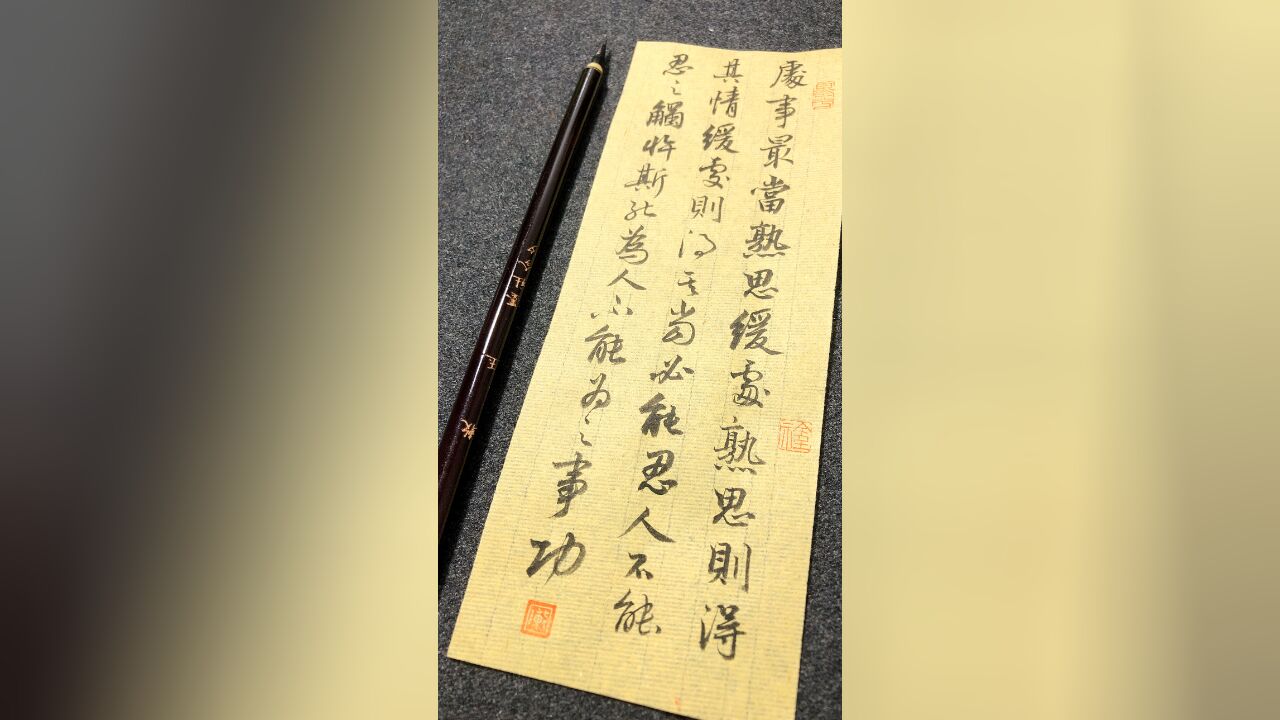 處事最當熟思緩處熟思則得
其情緩處則得其當必能忍人不能
忍之觸忤斯能為人不能為之事功